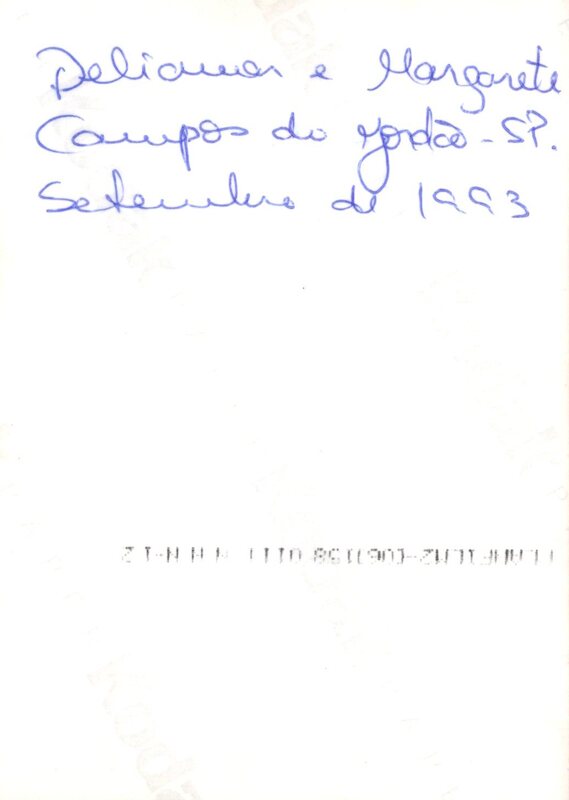 Deliamar e Margarete
Campos do Jordão - SP.
Setembro de 1993